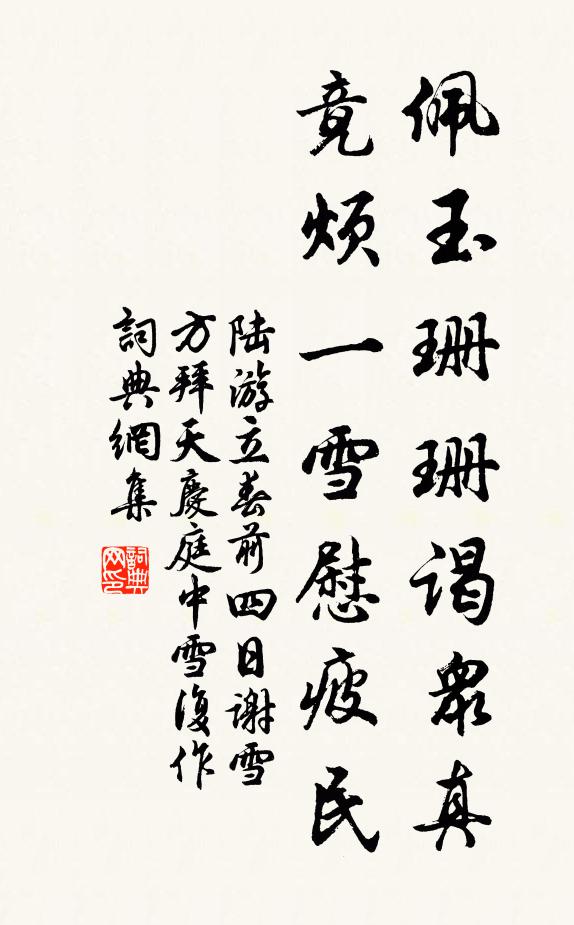 佩玉珊珊謁眾真
竟煩一雪慰疲民
陆游立春前四日谢雪
方拜天慶庭中雪復作
詞典網集
詞典网印